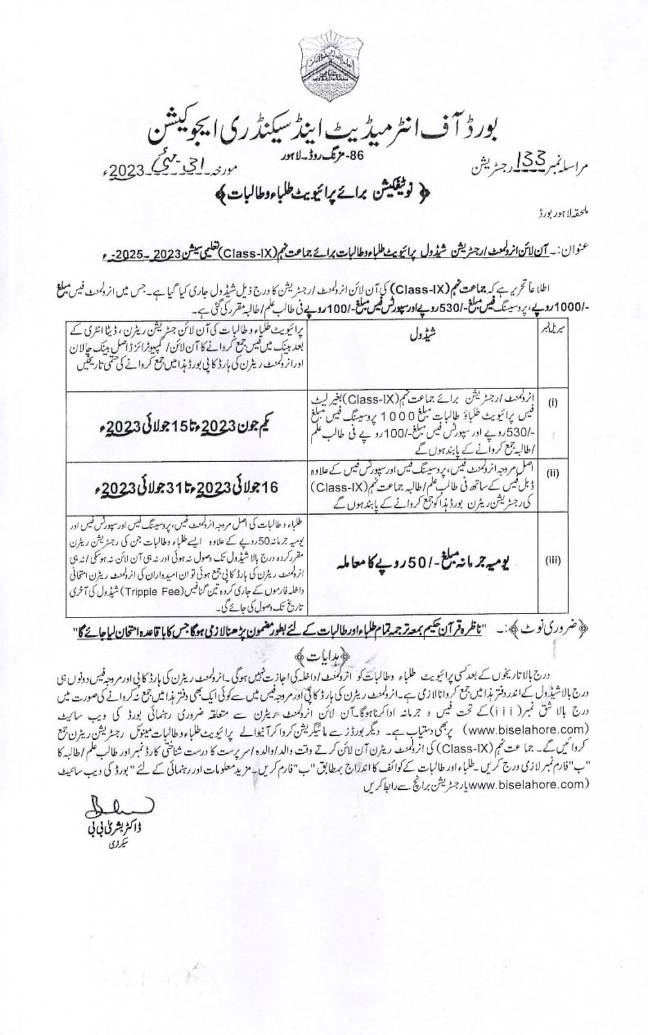 بورڈ آف انٹرمیڈیٹ اینڈ سیکنڈری ایجوکیشن
86-مزنگ روڈ۔ لاہور
مراسلہ نمبر 133 رجسٹریشن
مورخہ 31-مئی 2023ء
﴿ نوٹیفکیشن برائے پرائیویٹ طلباء و طالبات ﴾
ملحقہ لاہور بورڈ
عنوان:۔ آن لائن انرولمنٹ / رجسٹریشن شیڈول پرائیویٹ طلباء و طالبات برائے جماعت نہم (Class-IX) تعلیمی سیشن 2023 - 2025ء
اطلاعاً تحریر ہے کہ جماعت نہم (Class-IX) کی آن لائن انرولمنٹ / رجسٹریشن کا درج ذیل شیڈول جاری کیا گیا ہے۔ جس میں انرولمنٹ فیس مبلغ
1000/- روپے، پروسیسنگ فیس مبلغ -/530 روپے اور سپورٹس فیس مبلغ -/100 روپے فی طالب علم / طالبہ مقرر کی گئی ہے۔
سیریل نمبر
شیڈول
پرائیویٹ طلباء و طالبات کی آن لائن رجسٹریشن ریٹرن، ڈیٹا انٹری کے
بعد بینک میں فیس جمع کروانے کا آن لائن / کمپیوٹرائزڈ اصل بینک چالان
اور انرولمنٹ ریٹرن کی ہارڈ کاپی بورڈ ہذا میں جمع کروانے کی حتمی تاریخیں
(i)
انرولمنٹ / رجسٹریشن برائے جماعت نہم (Class-IX) بغیر لیٹ
فیس پرائیویٹ طلباء و طالبات مبلغ 1000 پروسیسنگ فیس مبلغ
-/530 روپے اور سپورٹس فیس مبلغ -/100 روپے فی طالب علم
/ طالبہ جمع کروانے کے پابند ہوں گے
یکم جون 2023ء تا 15 جولائی 2023ء
(ii)
اصل مروجہ انرولمنٹ فیس، پروسیسنگ فیس اور سپورٹس فیس کے علاوہ
ڈبل فیس کے ساتھ فی طالب علم / طالبہ جماعت نہم (Class-IX)
کی رجسٹریشن ریٹرن بورڈ ہذا کو جمع کروانے کے پابند ہوں گے
16 جولائی 2023ء تا 31 جولائی 2023ء
(iii)
یومیہ جرمانہ مبلغ -/50 روپے کا معاملہ
طلباء و طالبات کی اصل مروجہ انرولمنٹ فیس، پروسیسنگ فیس اور سپورٹس فیس اور
یومیہ جرمانہ 50 روپے کے علاوہ ایسے طلباء و طالبات جن کی رجسٹریشن ریٹرن
مقرر کردہ درج بالا شیڈول تک وصول نہ ہوئی اور نہ ہی آن لائن نہ ہو سکی / نہ ہی
انرولمنٹ ریٹرن کی ہارڈ کاپی جمع ہوئی تو ان امیدواران کی انرولمنٹ ریٹرن امتحانی
داخلہ فارموں کے جاری کردہ تین گنا فیس (Tripple Fee) شیڈول کی آخری
تاریخ تک وصول کی جائے گی۔
﴿ ضروری نوٹ ﴾:۔ "ناظرہ قرآن حکیم بمعہ ترجمہ تمام طلباء اور طالبات کے لئے بطور مضمون پڑھنا لازمی ہوگا جس کا باقاعدہ امتحان لیا جائے گا"
﴿ ہدایات ﴾
درج بالا تاریخوں کے بعد کسی پرائیویٹ طلباء و طالبات کو انرولمنٹ / داخلہ کی اجازت نہیں ہوگی۔ انرولمنٹ ریٹرن کی ہارڈ کاپی اور مروجہ فیس دونوں ہی
درج بالا شیڈول کے اندر دفتر ہذا میں جمع کروانا لازمی ہے۔ انرولمنٹ ریٹرن کی ہارڈ کاپی اور مروجہ فیس میں سے کوئی ایک بھی دفتر ہذا میں جمع نہ کروانے کی صورت میں
درج بالا شق نمبر (iii) کے تحت فیس و جرمانہ ادا کرنا ہوگا۔ آن لائن انرولمنٹ ریٹرن سے متعلقہ ضروری رہنمائی بورڈ کی ویب سائیٹ
(www.biselahore.com) پر بھی دستیاب ہے۔ دیگر بورڈز سے مائیگریشن کروا کر آنیوالے پرائیویٹ طلباء و طالبات مینوئل رجسٹریشن ریٹرن جمع
کروائیں گے۔ جماعت نہم (Class-IX) کی انرولمنٹ ریٹرن آن لائن کرتے وقت والد / والدہ / سرپرست کا درست شناختی کارڈ نمبر اور طالب علم / طالبہ کا
"ب" فارم نمبر لازمی درج کریں۔ طلباء اور طالبات کے کوائف کا اندراج بمطابق "ب" فارم کریں۔ مزید معلومات اور رہنمائی کے لئے "بورڈ کی ویب سائیٹ
(www.biselahore.com) یا رجسٹریشن برانچ سے رابطہ کریں
ڈاکٹر بشریٰ بی بی
سیکرٹری